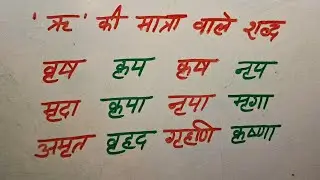 'ऋ' की मात्रा वाले शब्द
वृष कृप कृष नृप
मृदा कृपा नृपा मृगा
अमृत वृहद गृहणि कृष्णा